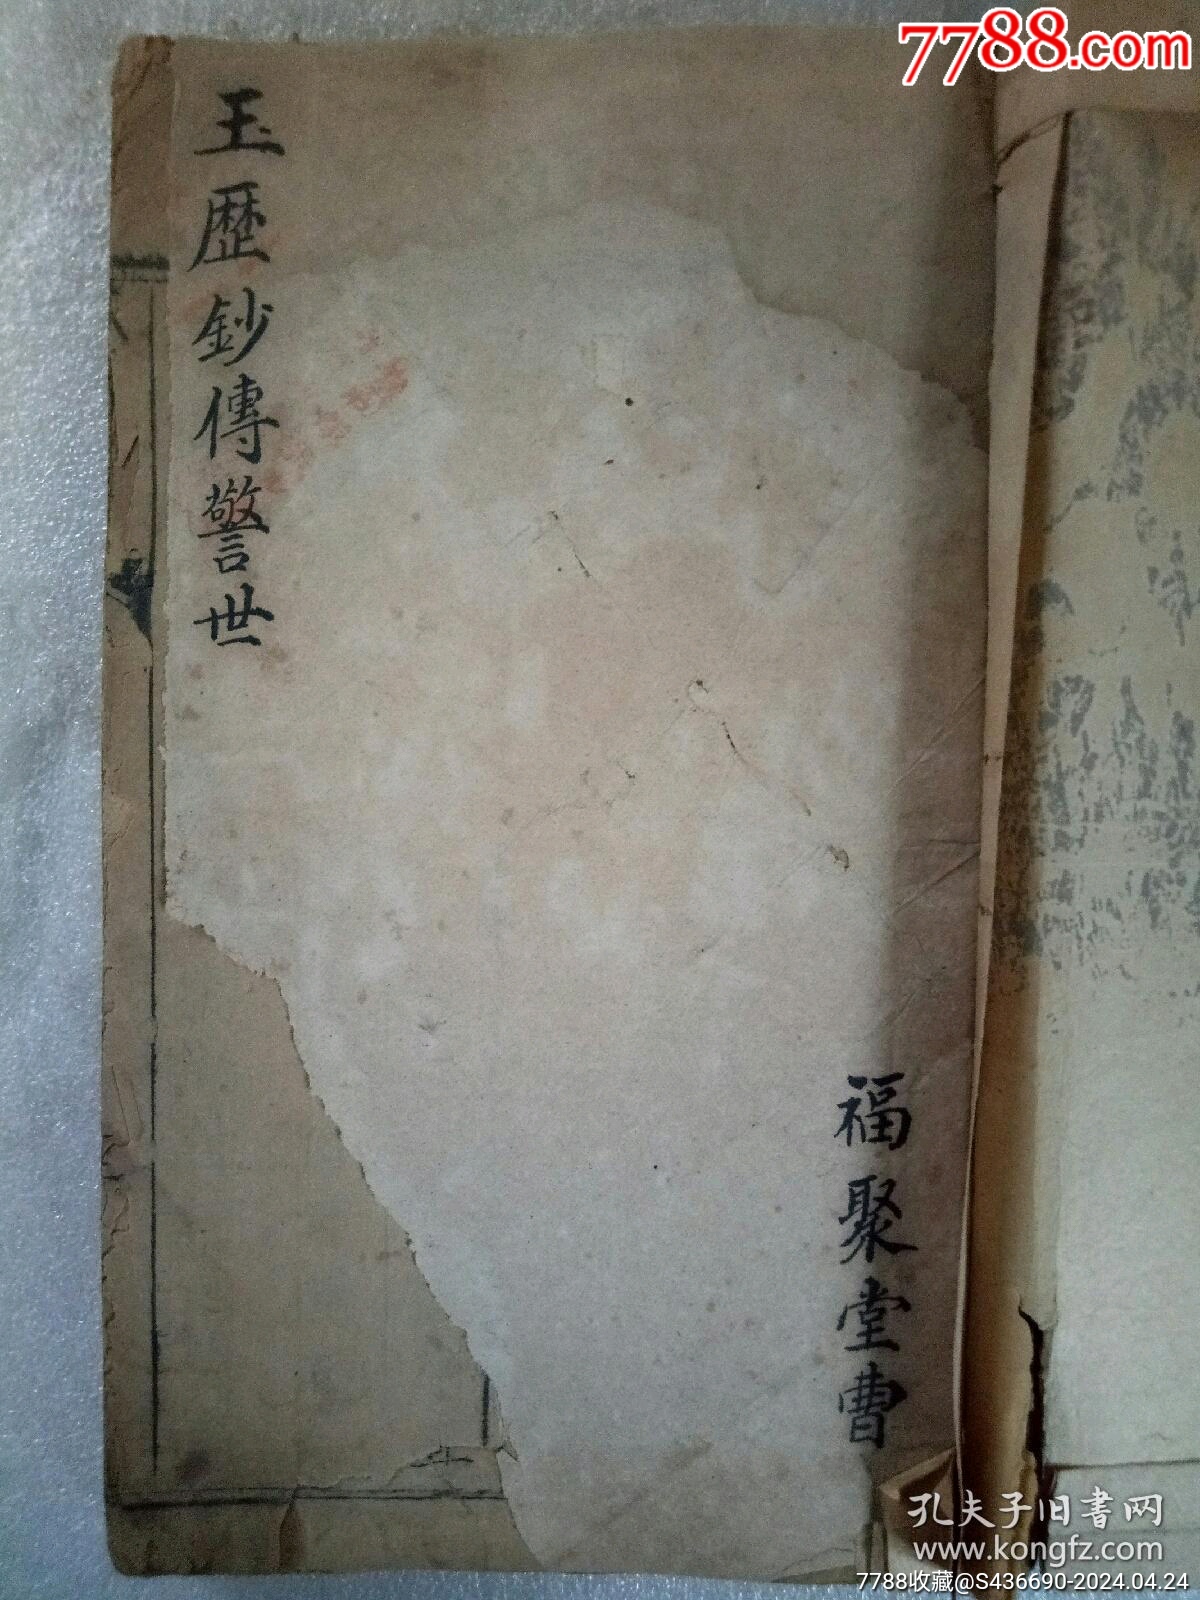 7788.com
玉歷鈔傳警世
福聚堂曹
孔夫子旧书网
www.kongfz.com
7788收藏@S436690-2024.04.24